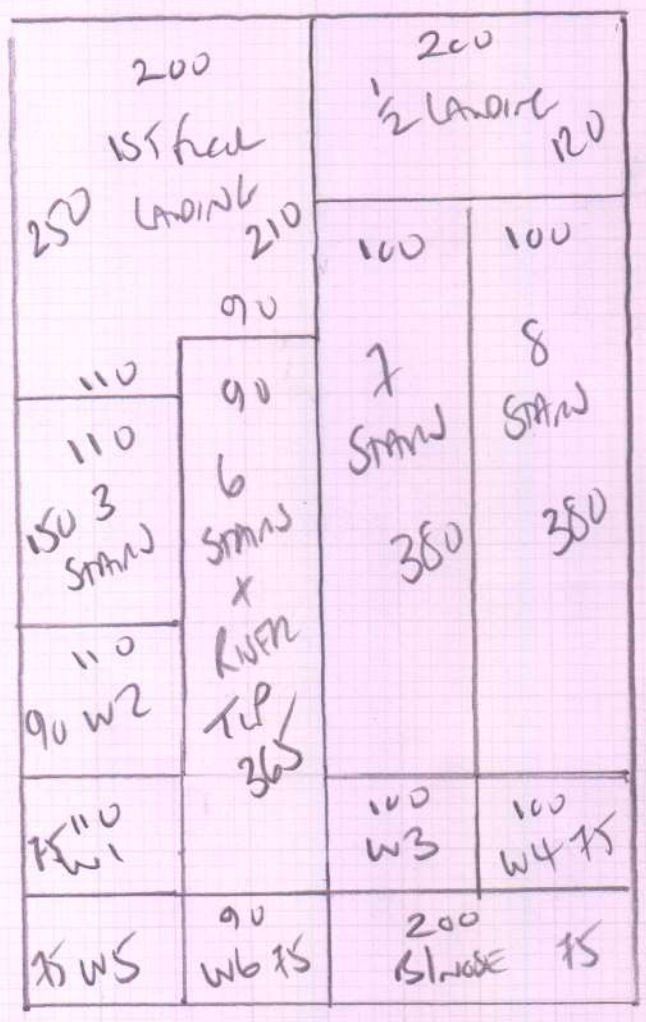 200
1ST floor
LANDING
250
210
90
110
200
1/2 LANDING
120
110
150 3
STAIRS
90
6
STAIRS
X
RISER
TOP
365
100
7
STAIRS
380
100
8
STAIRS
380
110
90 W2
110
75 W1
100
W3
100
W4 75
75 W5
90
W6 75
200
75